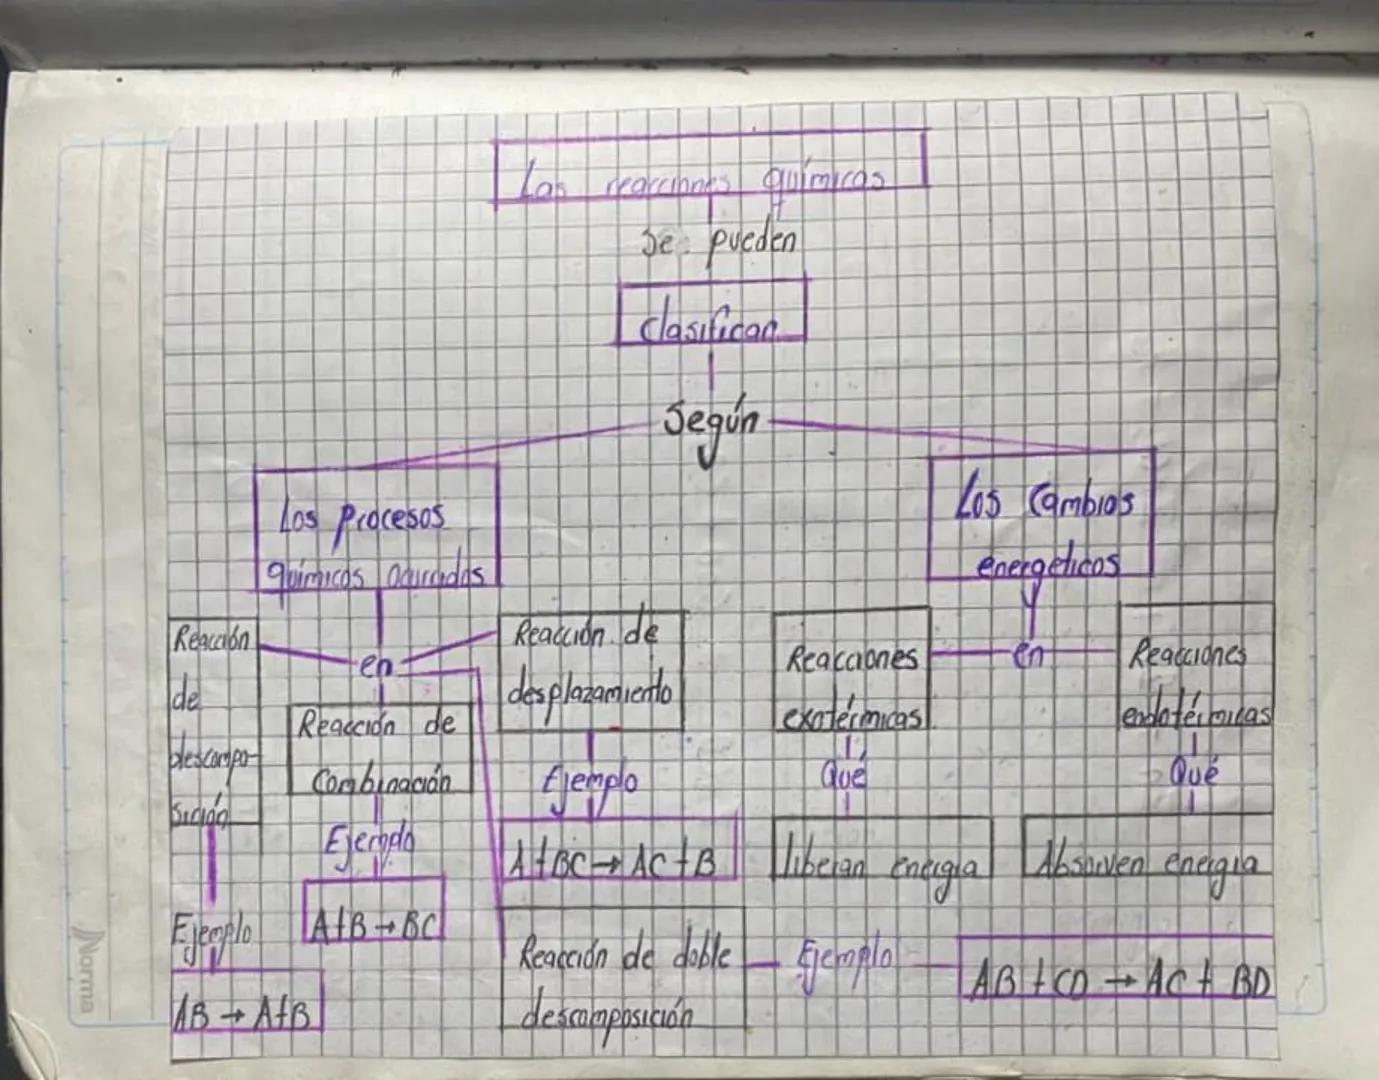 Las reacciones químicas
se pueden
clasifican
Según
Los procesos
químicos ocurridos
Los Cambios
energeticos
Reacción
de
descompo-
sición
en
Reacción de
Combinación
Reacción de
desplazamiento
Reacciones
exotérmicas
en
Reacciones
endotérmicas
Ejemplo
AB → A+B
Ejemplo
A+B → BC
Ejemplo
A+BC → AC+B
Qué
liberan energia
Qué
Absorven energia
Reacción de doble
descomposición
Ejemplo
AB + CD → AC + BD
Norma